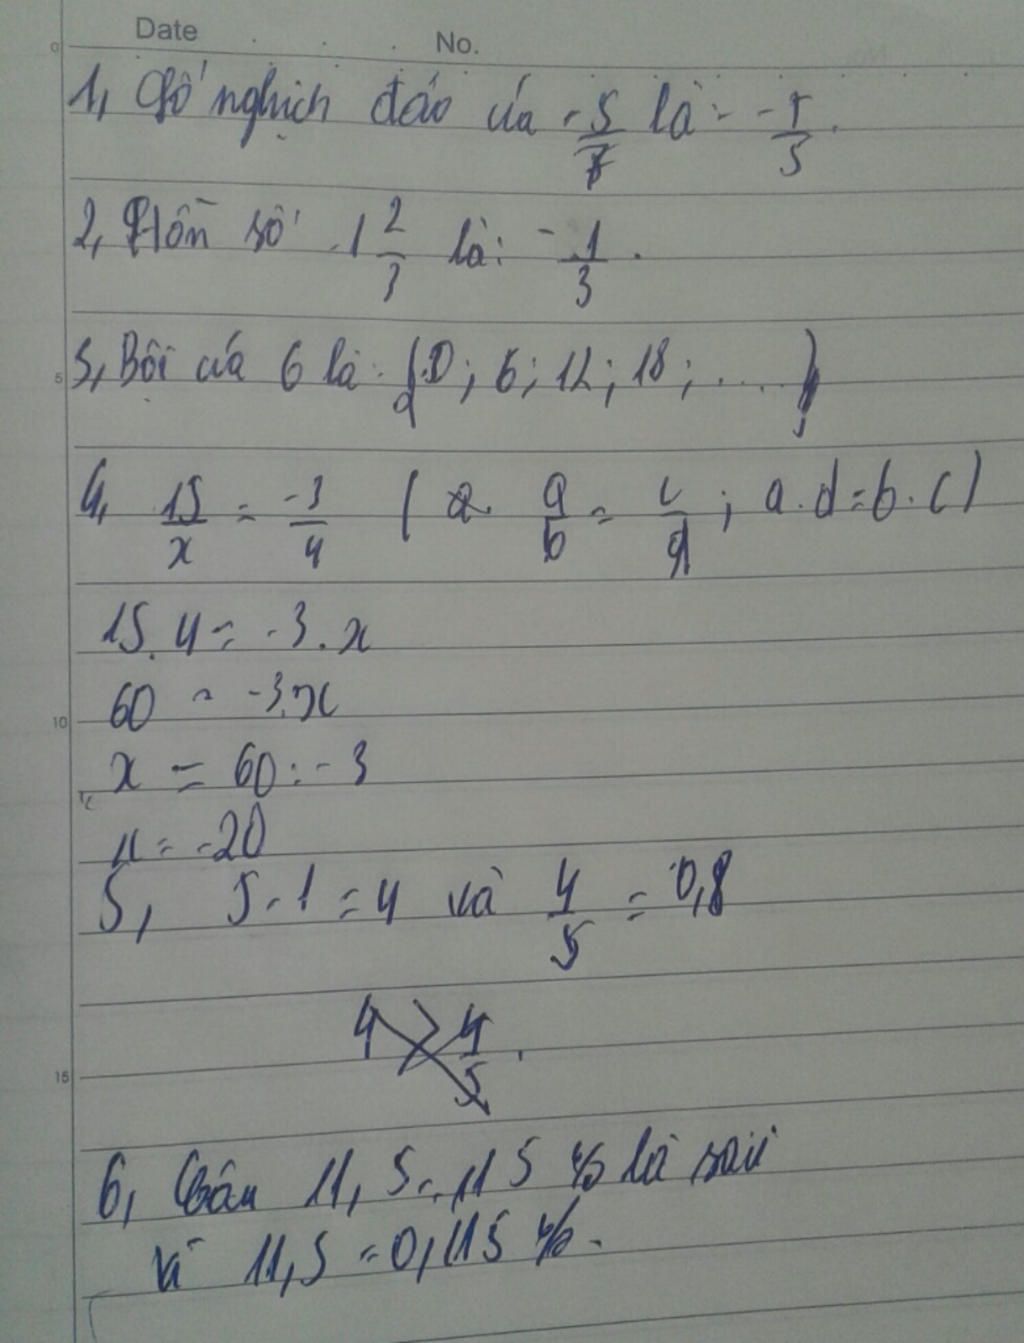 Date No.
1, Số nghịch đảo của -5/7 là - -7/5.
2, Hỗn số 1 2/3 là: - 1/3.
3, Bội của 6 là: {0; 6; 12; 18; ....}
4, 15/x = -3/4 ( a/b = c/d ; a.d=b.c)
15.4 = -3.x
60 = -3.x
x = 60:-3
x = -20
5, 5-1=4 và 4/5 = 0,8
4 > 4/5.
6, Câu 11,5 = 115 % là sai
vì 11,5 = 0,115 %.
0
5
10
15